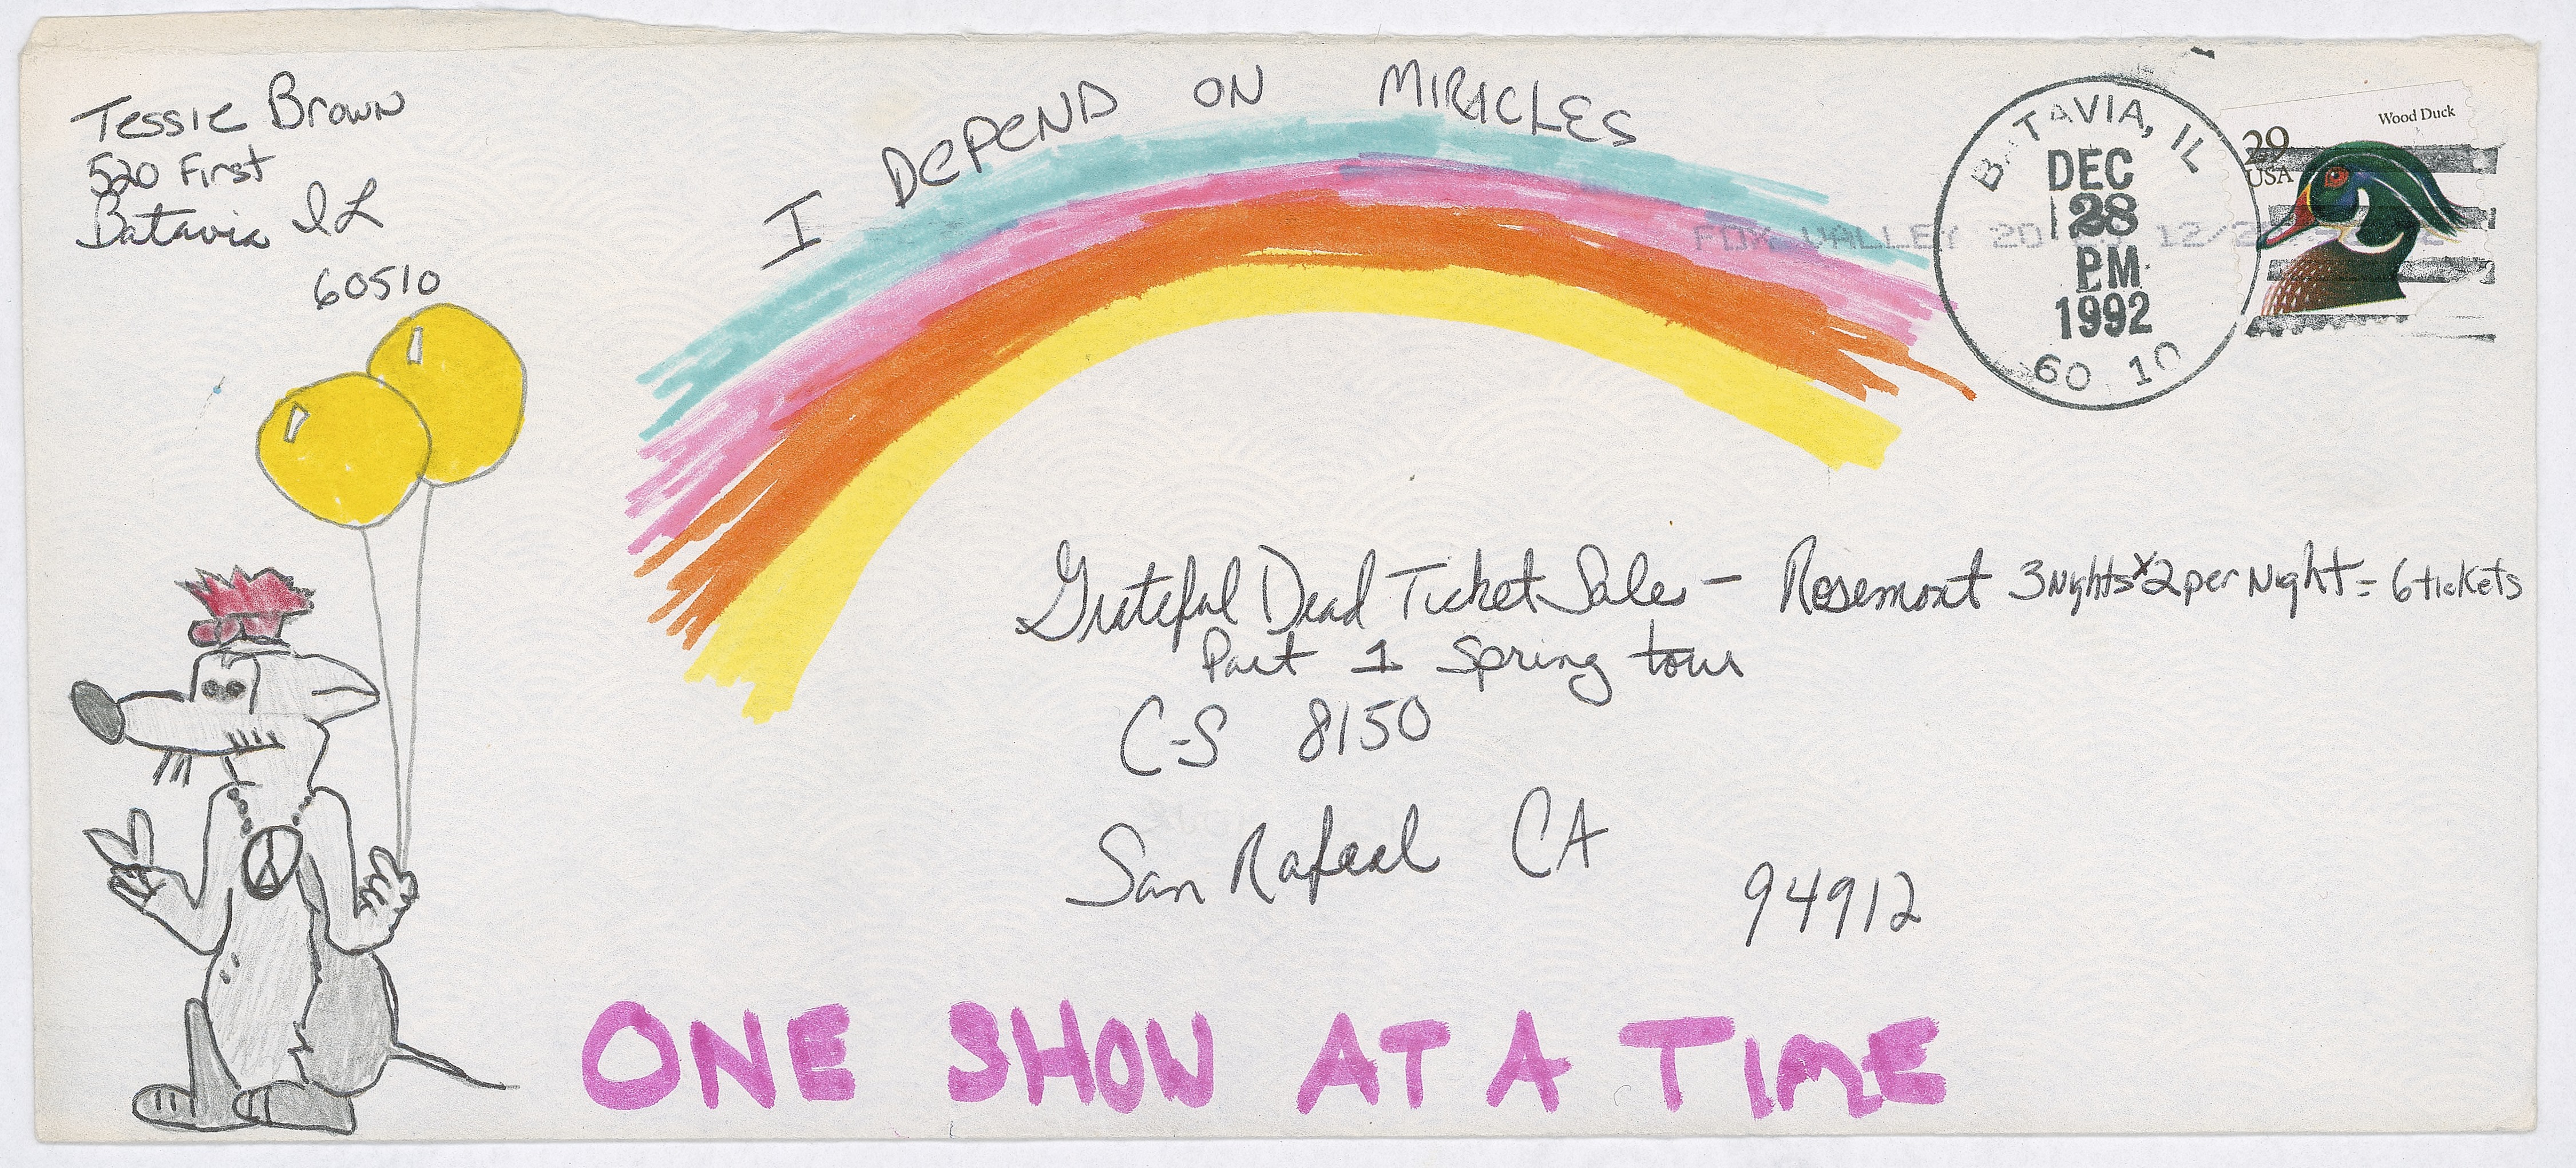 Tessie Brown
520 First
Batavia IL
60510
I DEPEND ON MIRICLES
BATAVIA, IL
DEC
28
PM
1992
60 10
Wood Duck
29
USA
FOX VALLEY 20 12/2
Grateful Dead Ticket Sales - Rosemont 3 Nights x 2 per Night = 6 tickets
Part 1 Spring tour
C-S 8150
San Rafael CA
94912
ONE SHOW AT A TIME